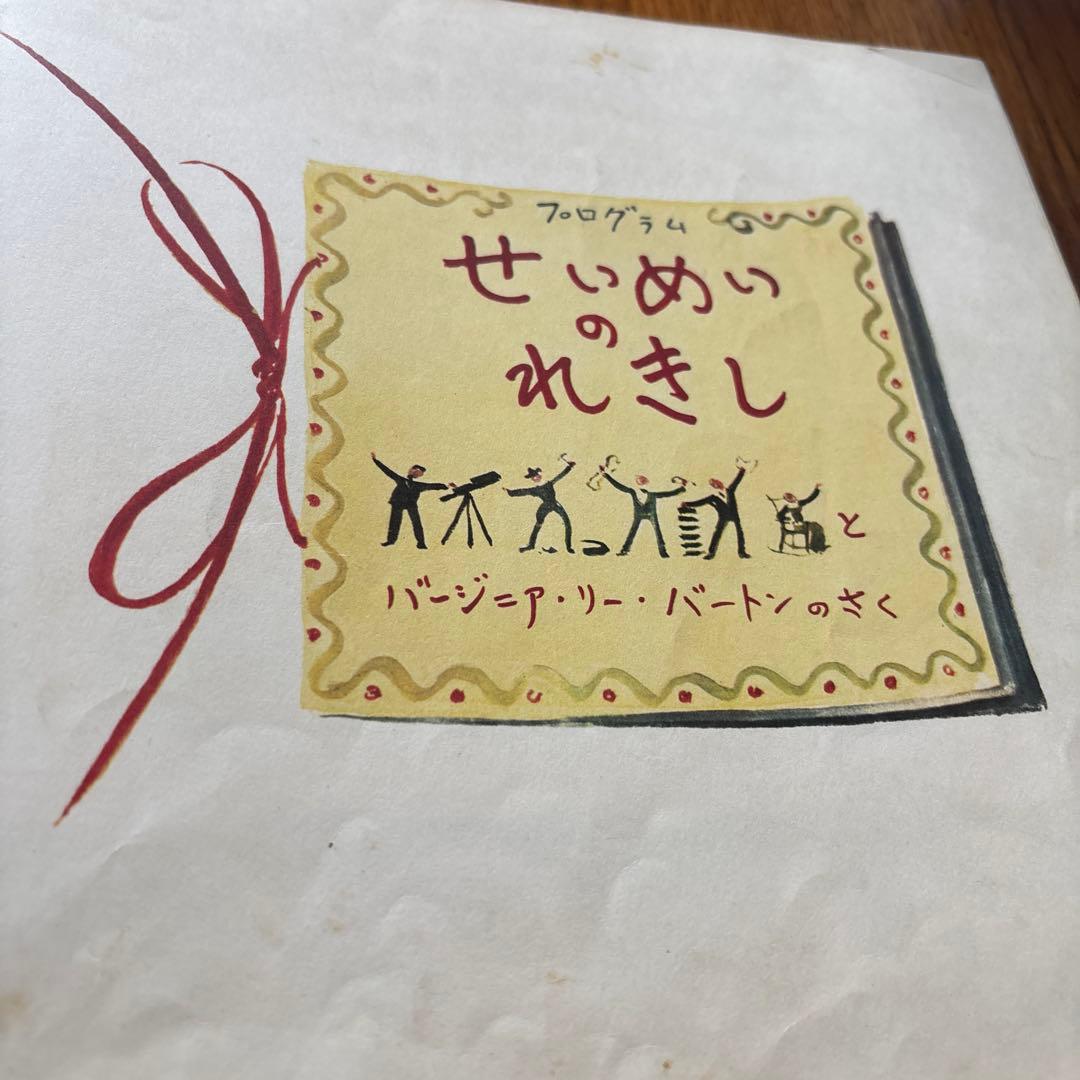 プログラム
せいめい
の
れきし
と
バージニア・リー・バートンのさく